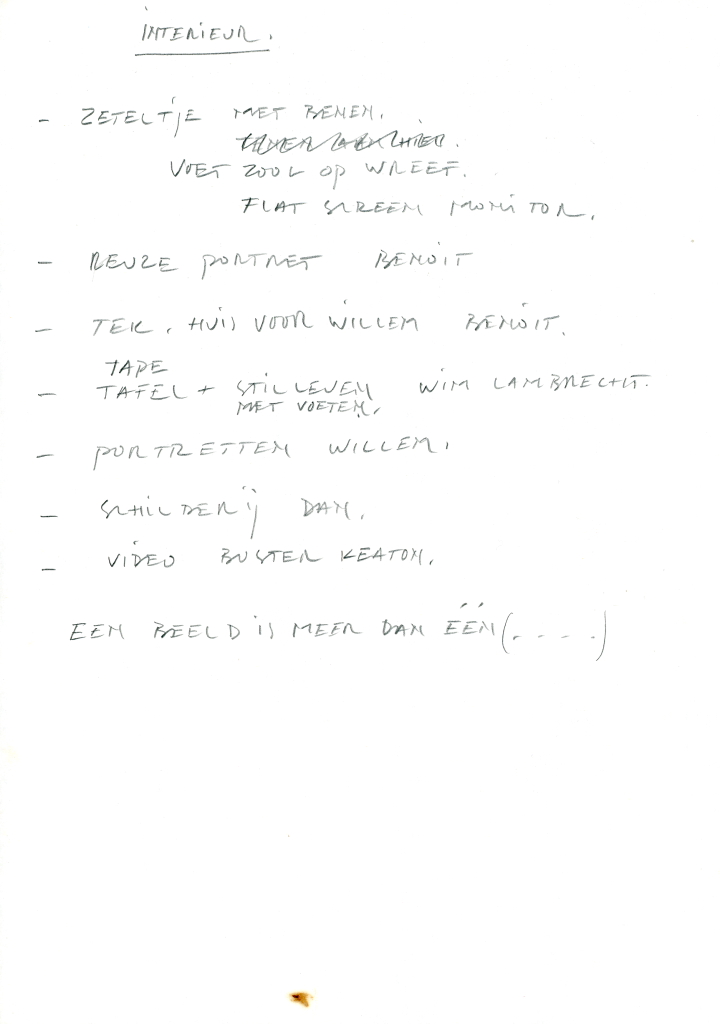 INTERIEUR.
- ZETELTJE MET BENEN.
VOET ZOOL OP WREEF.
FLAT SCREEN MONITOR.
- REUZE PORTRET BENOIT
- TEK. HUIS VOOR WILLEM BENOIT.
TAPE
- TAFEL + STILLEVEN WIM LAMBRECHT.
MET VOETEN.
- PORTRETTEN WILLEM.
- SCHILDERIJ DAN.
- VIDEO BUSTER KEATON.
EEN BEELD IS MEER DAN ÉÉN (. . . .)